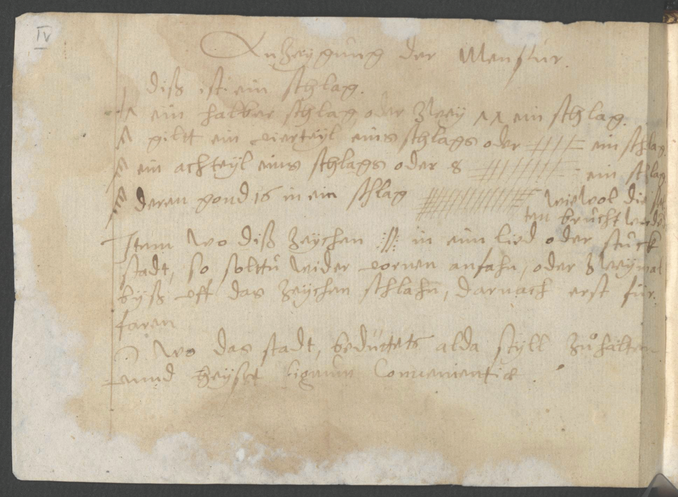 IV
Anzeygung der Mensur.
diß ist ein schlag.
ein halber schlag oder zwey ein schlag.
giltt ein vierteyl eins schlags oder ein schlag
ein achteyl eins schlags oder 8 ein schlag
deren gond 16 in ein schlag wiewol die
ten brucht
Item wo diß zeychen :||: in eim lied oder stuck
stadt, so solttu wider vornen anfahn, oder zweymal
byß vff das zeychen schlahn, darnach erst für
faren
wo das stadt, bedüttets alda styll zů halten
vnnd heyßt signum Conuenientie.